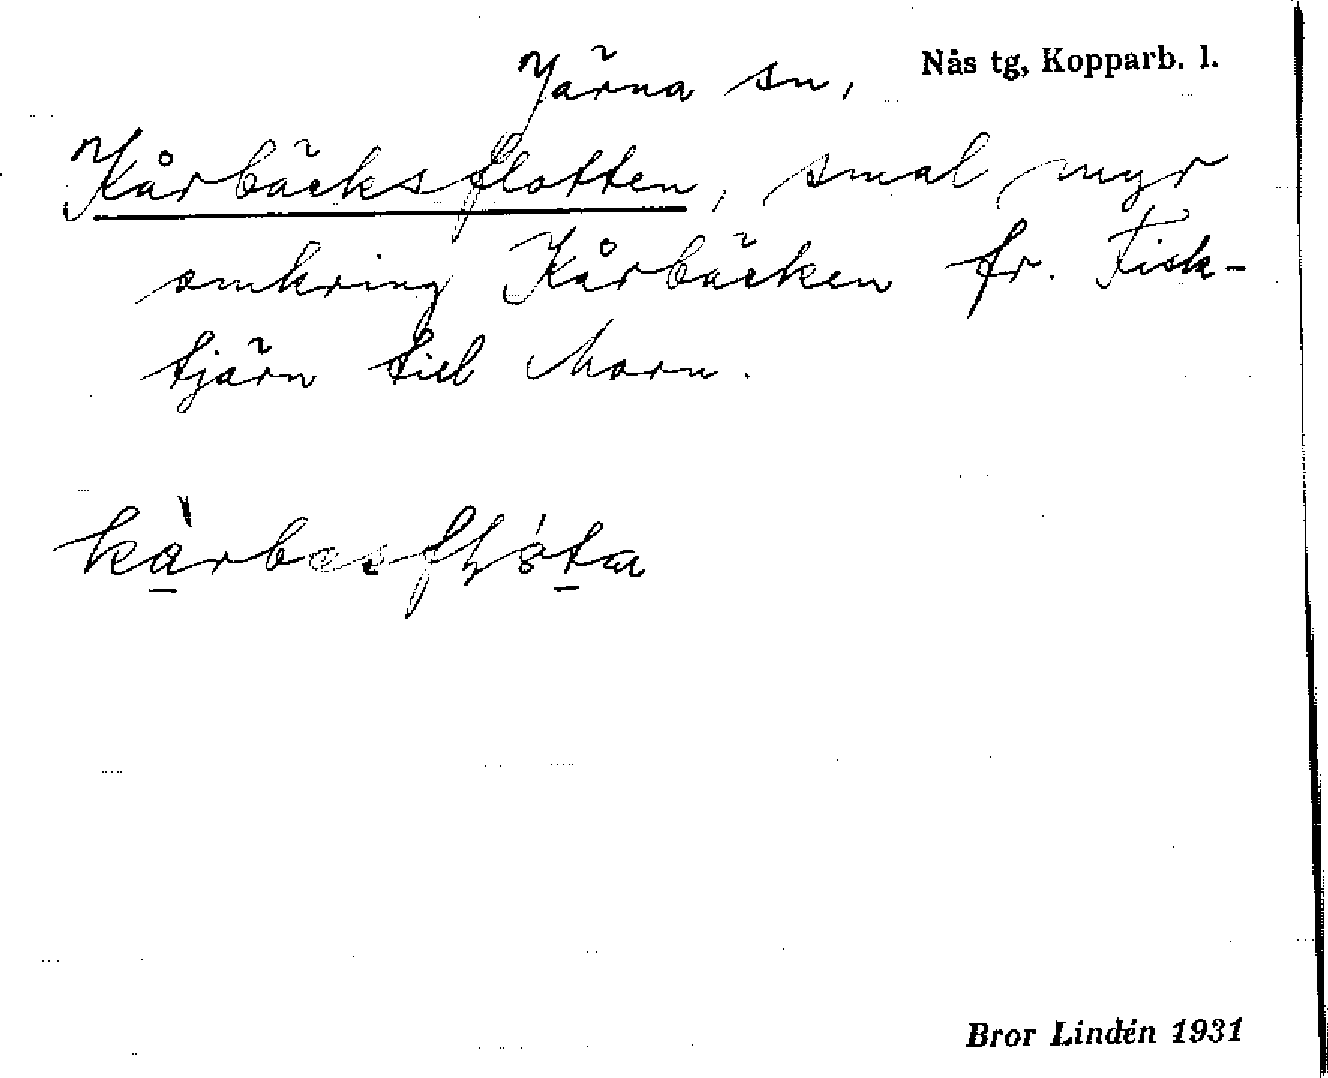 Järna sn, Nås tg, Kopparb. l.
Kårbäcksflotten, smal myr
omkring Kårbäcken fr. Fisk-
tjärn till Morn.
Bror Lindén 1931